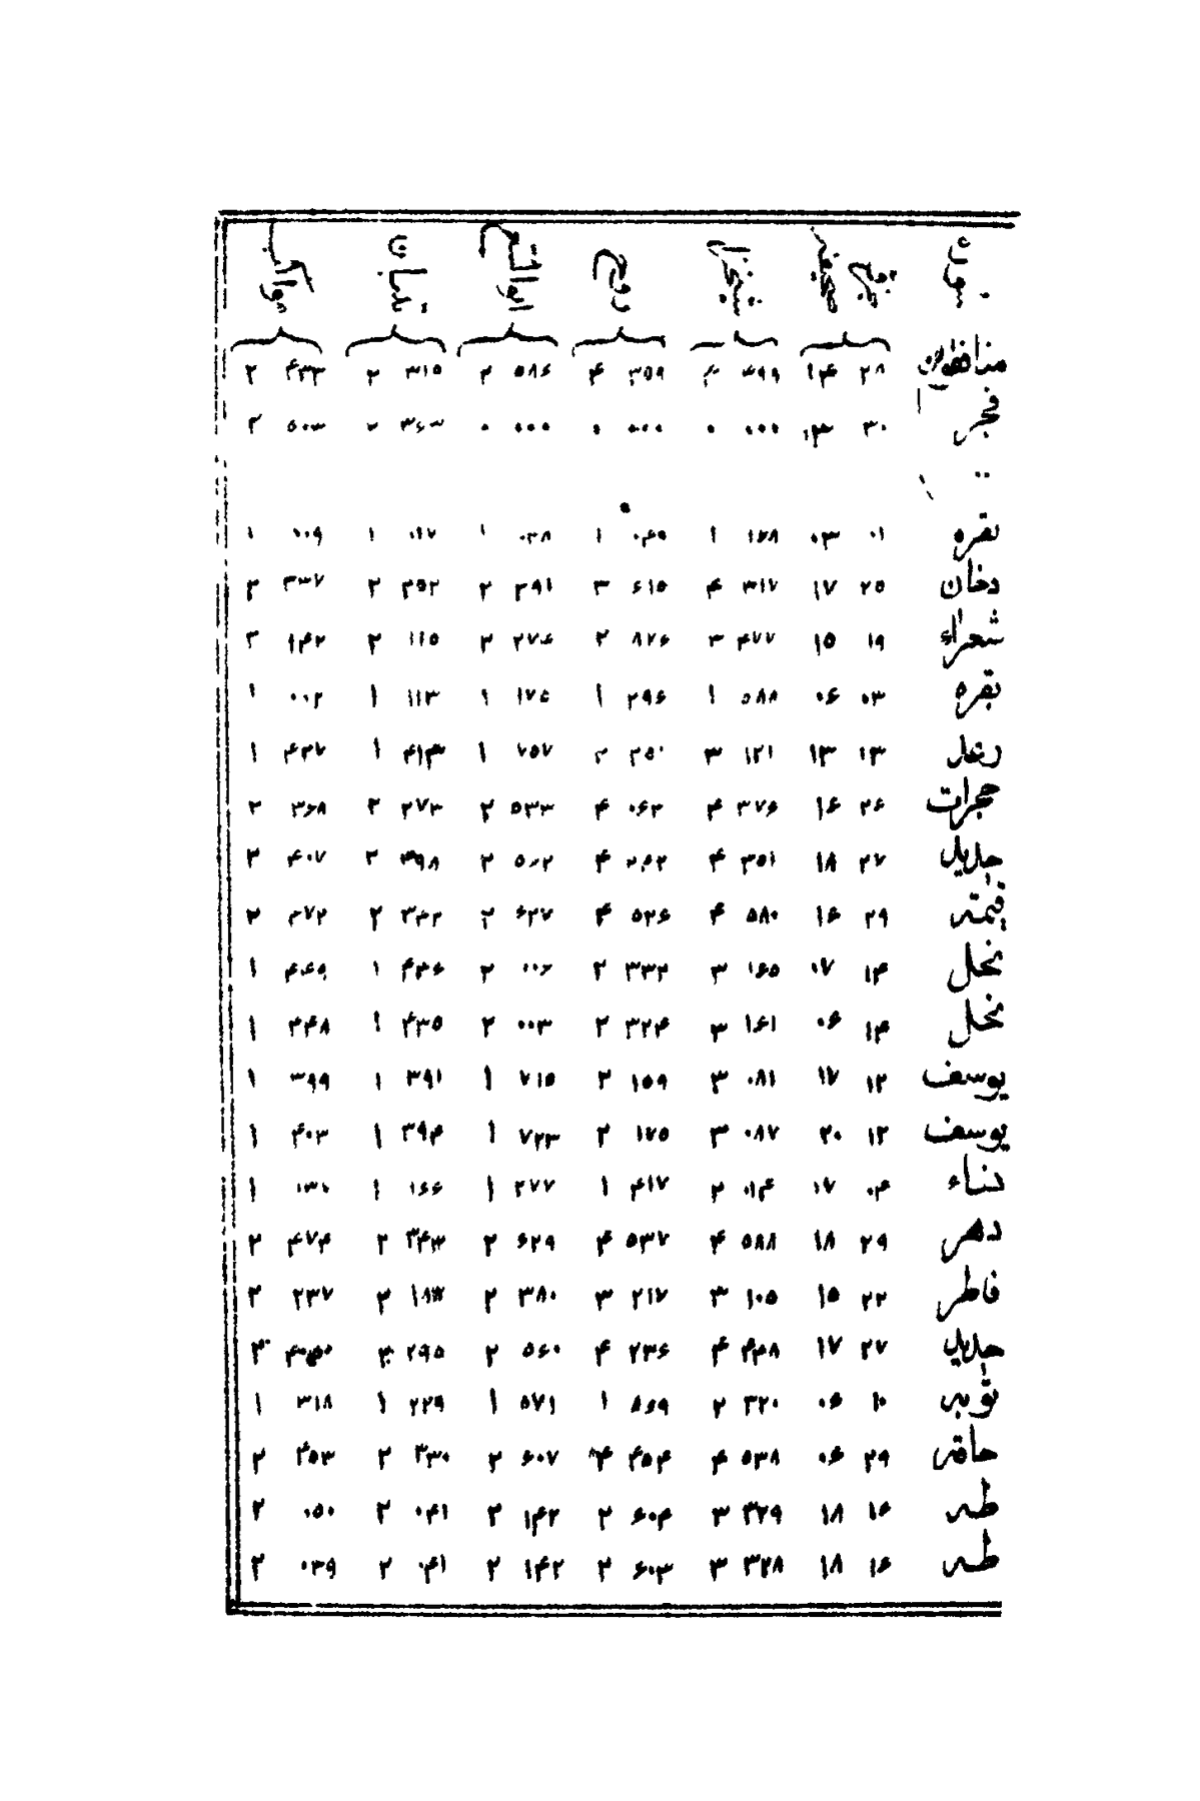 سوره جزء صفحه شیخ‌نا روح ابوالفتوح تبیان
منافقون ۲۸ ۱۴ ۴۹۹ ۴ ۳۵۹ ۴ ۵۸۶ ۲ ۳۱۵ ۲ ۴۳۳ ۲
فجر ۳۰ ۱۳ ۰۰۰ ۰ ۰۰۰ ۰ ۰۰۰ ۰ ۳۶۳ ۲ ۵۰۳ ۲
بقره ۰۱ ۰۳ ۱۶۸ ۱ ۰۴۹ ۱ ۰۳۸ ۱ ۰۱۷ ۱ ۰۰۹ ۱
دخان ۲۵ ۱۷ ۳۱۷ ۴ ۶۱۵ ۳ ۳۹۱ ۲ ۲۵۲ ۲ ۳۳۷ ۲
شعراء ۱۹ ۱۵ ۴۷۷ ۳ ۸۷۶ ۲ ۲۷۶ ۲ ۱۱۵ ۲ ۱۴۲ ۲
بقره ۰۳ ۰۶ ۵۸۸ ۱ ۲۹۶ ۱ ۱۷۵ ۱ ۱۱۳ ۱ ۰۰۲ ۱
رعد ۱۳ ۱۳ ۱۲۱ ۳ ۲۵۰ ۲ ۷۵۷ ۱ ۴۱۳ ۱ ۴۲۷ ۱
حجرات ۲۶ ۱۶ ۳۷۶ ۴ ۰۶۳ ۴ ۵۳۳ ۲ ۲۷۳ ۲ ۳۶۸ ۲
حدید ۲۷ ۱۸ ۳۵۱ ۴ ۲۵۲ ۴ ۲ ۳۹۸ ۲ ۴۰۷ ۲
قیمته ۲۹ ۱۶ ۵۸۰ ۴ ۵۲۶ ۴ ۶۲۷ ۲ ۳۴۲ ۲ ۴۷۲ ۲
نحل ۱۴ ۰۷ ۱۶۵ ۳ ۳۳۲ ۲ ۰۰۶ ۲ ۴۳۶ ۱ ۴۴۹ ۱
نحل ۱۴ ۰۶ ۱۶۱ ۳ ۳۲۴ ۲ ۰۰۳ ۲ ۴۳۵ ۱ ۴۴۸ ۱
یوسف ۱۲ ۱۷ ۰۸۱ ۳ ۱۵۹ ۲ ۷۱۵ ۱ ۳۹۱ ۱ ۳۹۹ ۱
یوسف ۱۲ ۲۰ ۰۸۷ ۳ ۱۷۵ ۲ ۷۲۳ ۱ ۳۹۴ ۱ ۴۰۳ ۱
نساء ۰۴ ۱۷ ۰۱۴ ۲ ۴۱۷ ۱ ۲۷۷ ۱ ۱۶۶ ۱ ۱۳۰ ۱
دهر ۲۹ ۱۸ ۵۸۸ ۴ ۵۳۷ ۴ ۶۲۹ ۲ ۳۴۳ ۲ ۴۷۴ ۲
فاطر ۲۲ ۱۵ ۱۰۵ ۳ ۲۱۷ ۳ ۳۸۰ ۲ ۱۸۳ ۲ ۲۳۷ ۲
حدید ۲۷ ۱۷ ۴۴۸ ۴ ۲۳۶ ۴ ۵۶۰ ۲ ۲۹۵ ۲ ۲
توبه ۱۰ ۰۶ ۳۲۰ ۲ ۸۶۹ ۱ ۵۷۱ ۱ ۲۲۹ ۱ ۳۱۸ ۱
حاقه ۲۹ ۰۶ ۵۳۸ ۴ ۴۵۴ ۴ ۶۰۷ ۲ ۳۳۰ ۲ ۴۵۳ ۲
طه ۱۶ ۱۸ ۳۲۹ ۳ ۶۰۴ ۲ ۱۴۲ ۲ ۰۴۱ ۲ ۰۵۰ ۲
طه ۱۶ ۱۸ ۳۲۸ ۳ ۶۰۳ ۲ ۱۴۲ ۲ ۰۴۱ ۲ ۰۳۹ ۲